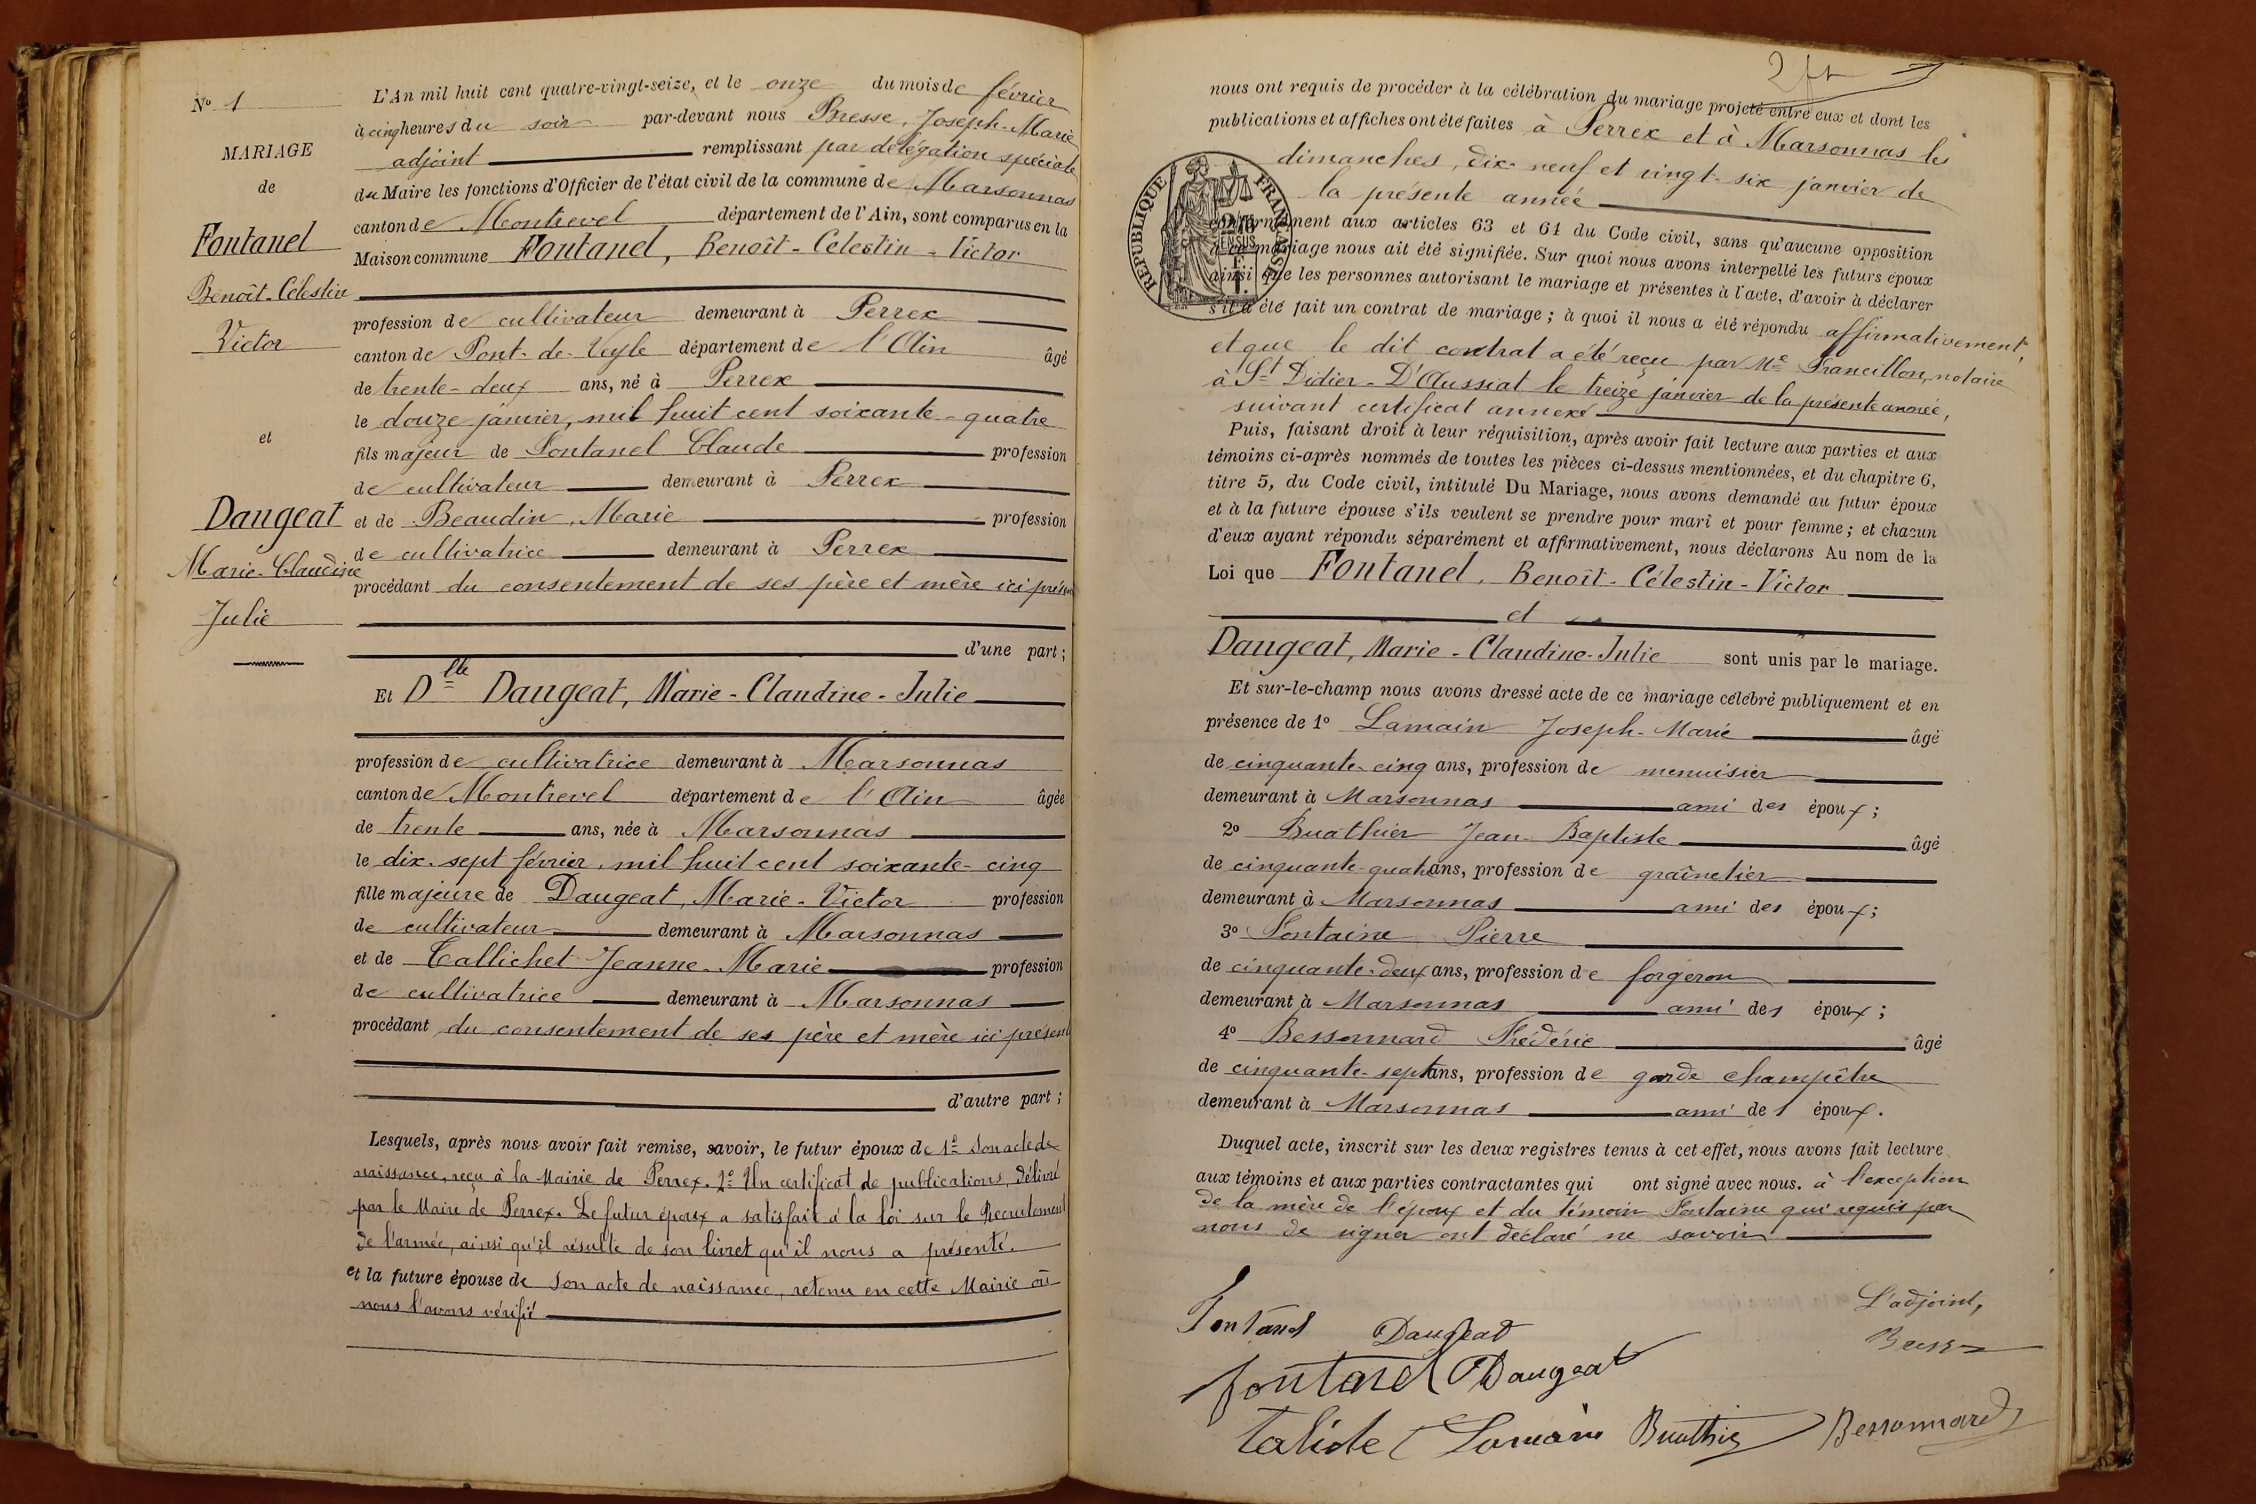 N° 1
MARIAGE
de
Fontanel
Benoît-Célestin
Victor
et
Daugeat
Marie-Claudine
Julie
L'An mil huit cent quatre-vingt-seize, et le onze du mois de février
à cinq heures du soir par-devant nous Bresse, Joseph-Marie
adjoint remplissant par délégation spéciale
du Maire les fonctions d'Officier de l'état civil de la commune de Marsonnas
canton de Montrevel département de l'Ain, sont comparus en la
Maison commune Fontanel, Benoît-Célestin-Victor
profession de cultivateur demeurant à Perrex
canton de Pont-de-Veyle département de l'Ain âgé
de trente-deux ans, né à Perrex
le douze janvier, mil huit cent soixante-quatre
fils majeur de Fontanel Claude profession
de cultivateur demeurant à Perrex
et de Beaudin, Marie profession
de cultivatrice demeurant à Perrex
procédant du consentement de ses père et mère ici présen
d'une part;
Et Dlle Daugeat, Marie-Claudine-Julie
profession de cultivatrice demeurant à Marsonnas
canton de Montrevel département de l'Ain âgée
de trente ans, née à Marsonnas
le dix-sept février, mil huit cent soixante-cinq
fille majeure de Daugeat, Marie-Victor profession
de cultivateur demeurant à Marsonnas
et de Tallichet Jeanne-Marie profession
de cultivatrice demeurant à Marsonnas
procédant du consentement de ses père et mère ici présent
d'autre part;
Lesquels, après nous avoir fait remise, savoir, le futur époux de 1° Son acte de
naissance, reçu à la Mairie de Perrex. 2° Un certificat de publications, délivré
par le Maire de Perrex. Le futur époux a satisfait à la loi sur le Recrutement
de l'armée, ainsi qu'il résulte de son livret qu'il nous a présenté.
et la future épouse de Son acte de naissance, retenu en cette Mairie où
nous l'avons vérifié
nous ont requis de procéder à la célébration du mariage projeté entre eux et dont les
publications et affiches ont été faites à Perrex et à Marsonnas les
dimanches, dix-neuf et vingt-six janvier de
la présente année
RÉPUBLIQUE FRANÇAISE
conformément aux articles 63 et 64 du Code civil, sans qu'aucune opposition
à ce mariage nous ait été signifiée. Sur quoi nous avons interpellé les futurs époux
ainsi que les personnes autorisant le mariage et présentes à l'acte, d'avoir à déclarer
s'il a été fait un contrat de mariage; à quoi il nous a été répondu affirmativement,
et que le dit contrat a été reçu par Me Francillon, notaire
à St Didier-D'Aussiat le treize janvier de la présente année,
suivant certificat annexé
Puis, faisant droit à leur réquisition, après avoir fait lecture aux parties et aux
témoins ci-après nommés de toutes les pièces ci-dessus mentionnées, et du chapitre 6,
titre 5, du Code civil, intitulé Du Mariage, nous avons demandé au futur époux
et à la future épouse s'ils veulent se prendre pour mari et pour femme; et chacun
d'eux ayant répondu séparément et affirmativement, nous déclarons Au nom de la
Loi que Fontanel, Benoît-Célestin-Victor
et
Daugeat, Marie-Claudine-Julie sont unis par le mariage.
Et sur-le-champ nous avons dressé acte de ce mariage célébré publiquement et en
présence de 1° Lamain Joseph-Marie âgé
de cinquante-cinq ans, profession de menuisier
demeurant à Marsonnas ami des époux;
2° Buathier Jean-Baptiste âgé
de cinquante-quatre ans, profession de graînetier
demeurant à Marsonnas ami des époux;
3° Fontaine Pierre
de cinquante-deux ans, profession de forgeron
demeurant à Marsonnas ami des époux;
4° Bessonnard Frédéric âgé
de cinquante-sept ans, profession de garde champêtre
demeurant à Marsonnas ami des époux.
Duquel acte, inscrit sur les deux registres tenus à cet effet, nous avons fait lecture
aux témoins et aux parties contractantes qui ont signé avec nous. à l'exception
de la mère de l'époux et du témoin Fontaine qui requis par
nous de signer ont déclaré ne savoir
L'adjoint,
Fontanel Daugeat Bresse
fontanel Daugeat
Lamain Buathier Bessonnard